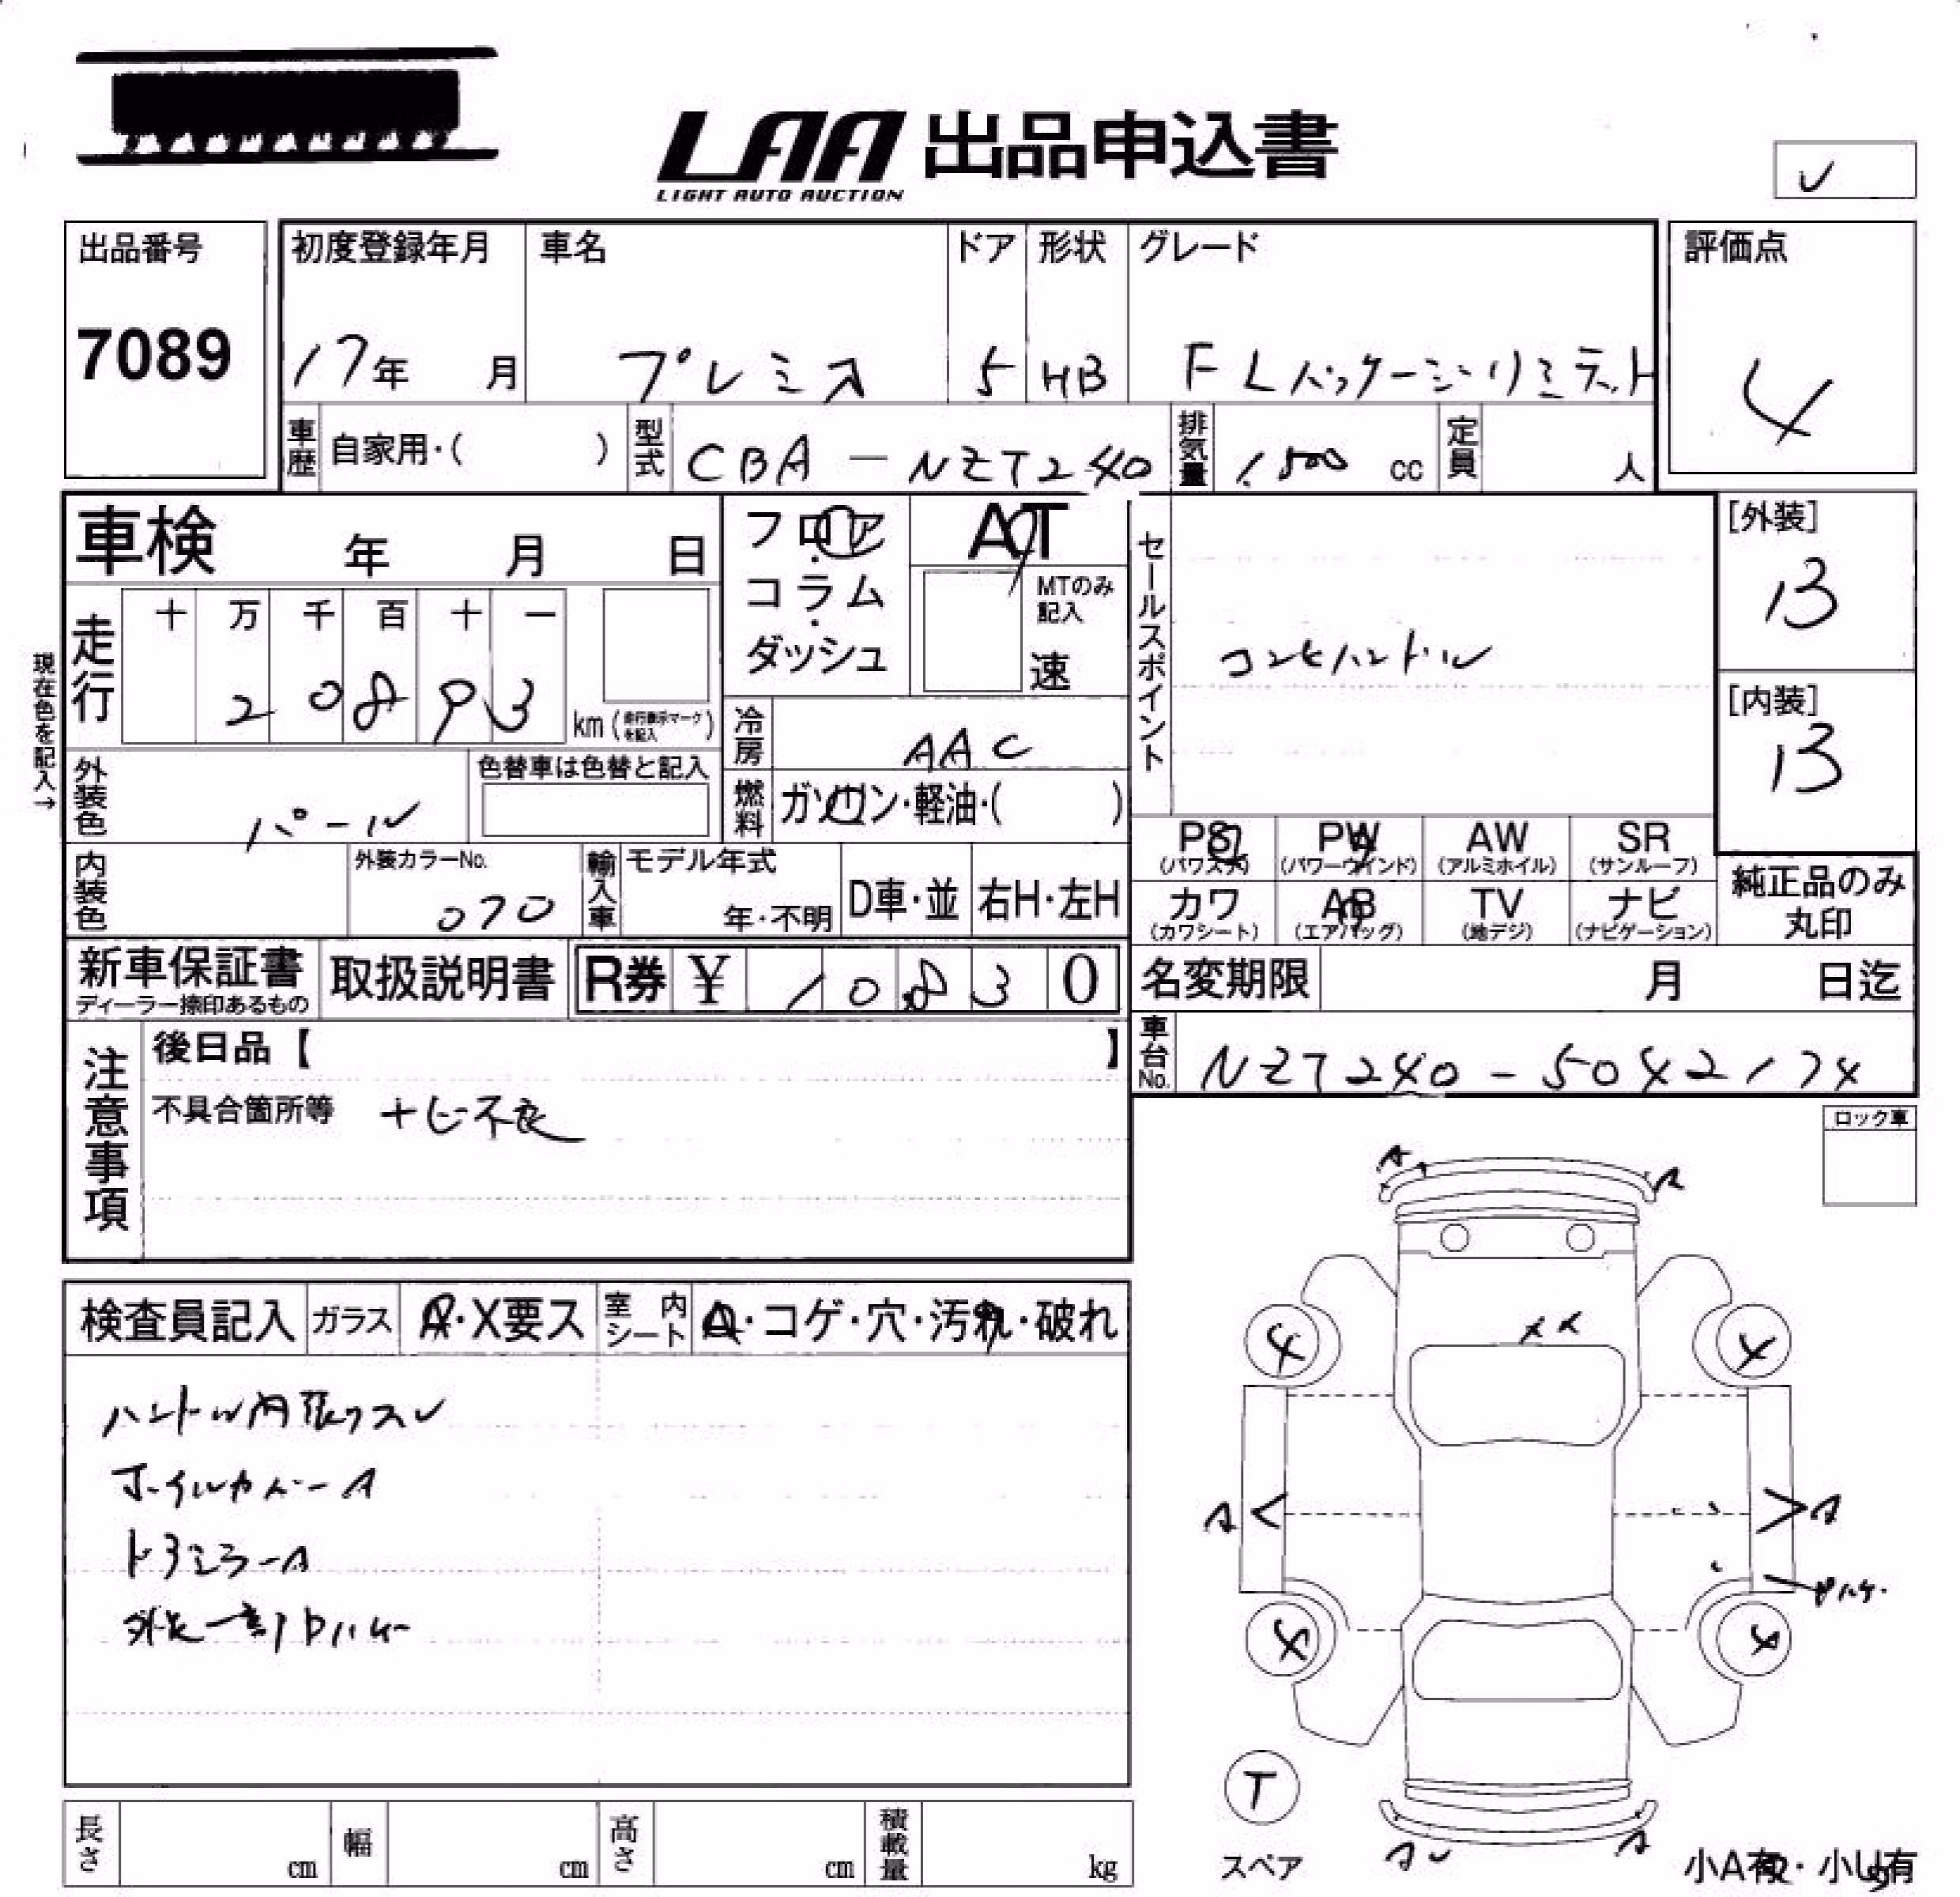 LAA 出品申込書
LIGHT AUTO AUCTION
出品番号
7089
初度登録年月
17年 月
車名
プレミオ
ドア
5
形状
HB
グレード
F Lパッケージリミテット
評価点
4
車歴 自家用・( )
型式 CBA-NZT240
排気量 1.500 cc
定員 人
車検 年 月 日
フロア・コラム・ダッシュ
AT
MTのみ記入
速
現在色を記入→
走行 十 万 千 百 十 一
20893
km (走行表示マークを記入)
冷房 AAC
燃料 ガソリン・軽油・( )
外装色 パール
色替車は色替と記入
内装色
外装カラーNo.
070
輸入車 モデル年式
年・不明
D車・並
右H・左H
セールスポイント
コンビハンドル
[外装]
13
[内装]
13
PS (パワステ)
PW (パワーウインド)
AW (アルミホイル)
SR (サンルーフ)
カワ (カワシート)
AB (エアバッグ)
TV (地デジ)
ナビ (ナビゲーション)
純正品のみ
丸印
新車保証書
ディーラー捺印あるもの
取扱説明書
R券 ¥ 10830
名変期限 月 日迄
車台No. NZT240-5042174
注意事項
後日品【 】
不具合箇所等 ナビ不良
ロック車
検査員記入
ガラス A・X要ス
室内シート A・コゲ・穴・汚れ・破れ
ハンドル内張りスレ
ホイルカバーA
ドアミラーA
外装一部ハゲ
A
A
4
4
A
A
ハゲ
4
4
T
スペア
A
A
小A有・小U有
長さ cm
幅 cm
高さ cm
積載量 kg